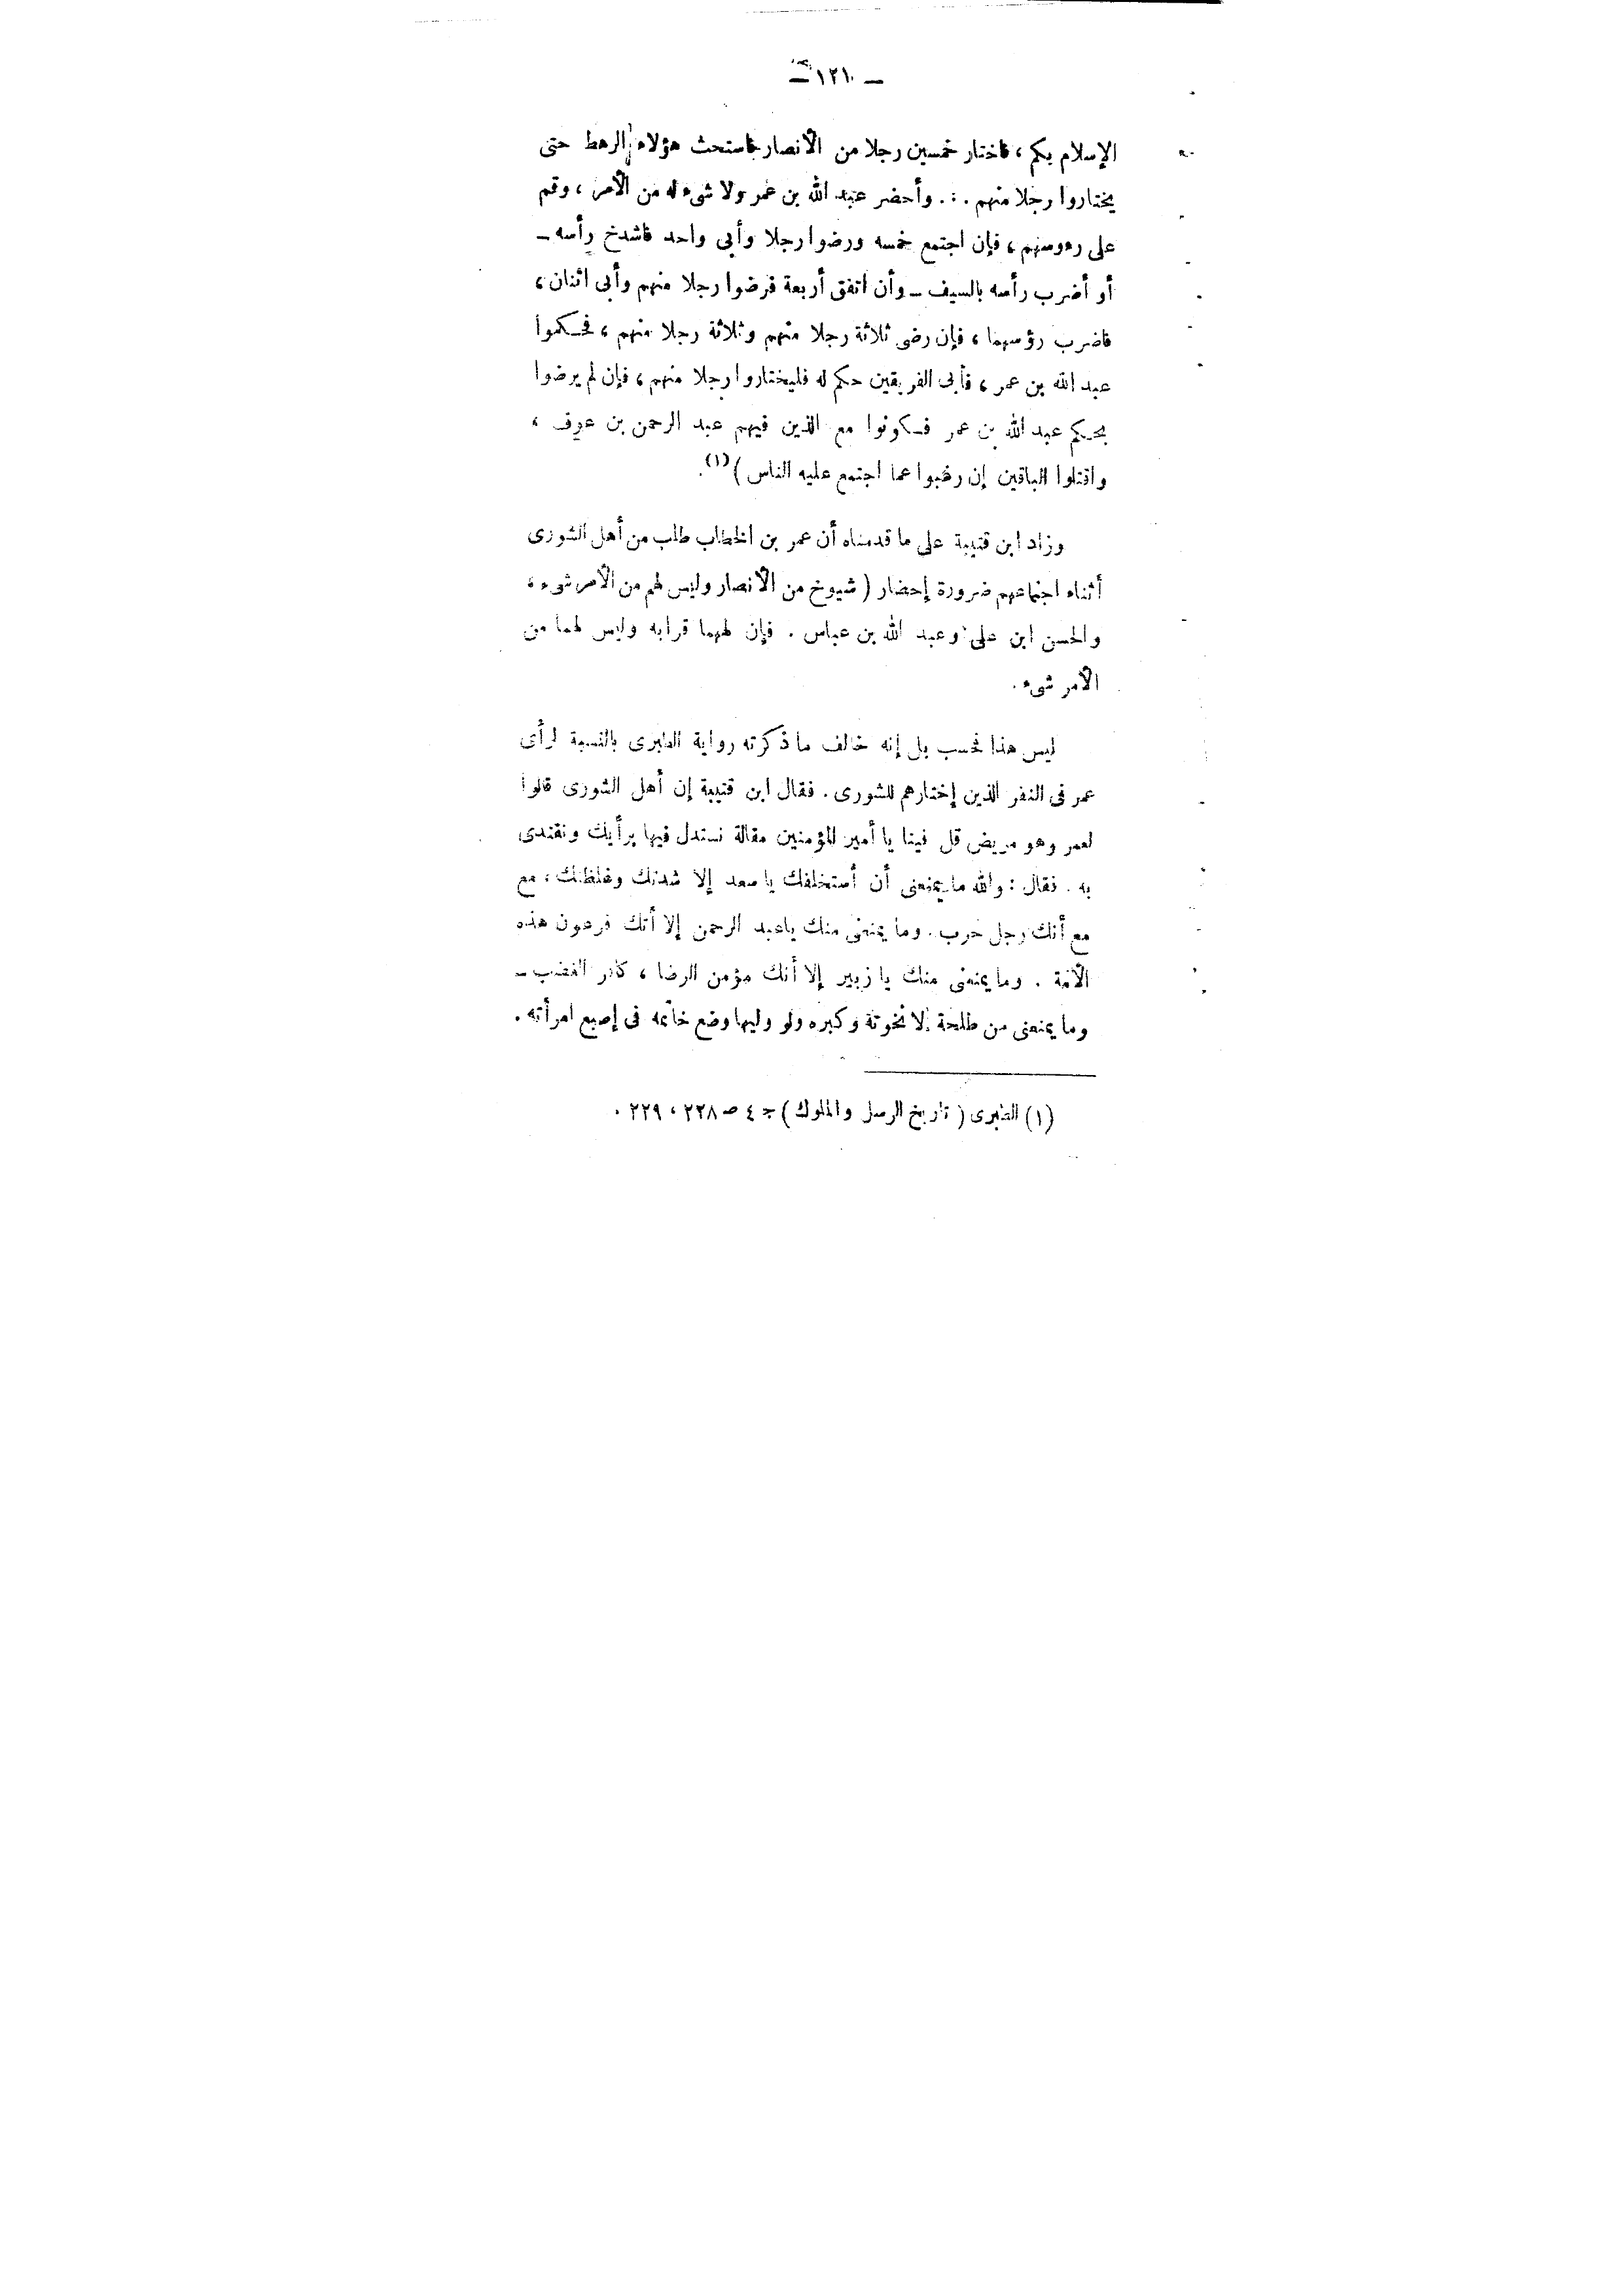 — ١٢١٠ —
الإسلام بكم ، فاختار خمسين رجلا من الأنصار فاستحث هؤلاء الرهط حتى
يختاروا رجلا منهم . : . وأحضر عبد الله بن عمر ولا شىء له من الأمر ، وقم
على رءوسهم ، فإن اجتمع خمسه ورضوا رجلا وأبى واحد فاشدخ رأسه —
أو أضرب رأسه بالسيف — وأن اتفق أربعة فرضوا رجلا منهم وأبى اثنان ،
فاضرب رؤسهما ، فإن رضى ثلاثة رجلا منهم وثلاثة رجلا منهم ، فحكموا
عبد الله بن عمر ، فأبى الفريقين حكم له فليختاروا رجلا منهم ، فإن لم يرضوا
بحكم عبد الله بن عمر فكونوا مع الذين فيهم عبد الرحمن بن عوف ،
واقتلوا الباقين إن رغبوا عما اجتمع عليه الناس )(١).
وزاد ابن قتيبة على ما قدمناه أن عمر بن الخطاب طلب من أهل الشورى
أثناء اجتماعهم ضرورة إحضار ( شيوخ من الأنصار وليس لهم من الأمر شىء ،
والحسن ابن على وعبد الله بن عباس . فإن لهما قرابه وليس لهما من
الأمر شىء .
ليس هذا فحسب بل إنه خالف ما ذكرته رواية الطبرى بالنسبة لرأى
عمر فى النفر الذين إختارهم للشورى . فقال ابن قتيبة إن أهل الشورى قالوا
لعمر وهو مريض قل فينا يا أمير المؤمنين مقالة نستدل فيها برأيك ونقتدى
به . فقال : والله ما يمنعنى أن أستخلفك يا سعد إلا شدتك وغلظتك ، مع
مع أنك رجل حرب . وما يمنعنى منك ياعبد الرحمن إلا أنك فرعون هذه
الأمة . وما يمنعنى منك يا زبير إلا أنك مؤمن الرضا ، كافر الغضب —
وما يمنعنى من طلحة إلا نخوتة وكبره ولو وليها وضع خاتمه فى إصبع امرأته .
(١) الطبرى ( تاريخ الرسل والملوك ) ج ٤ ص ٢٢٨ ، ٢٢٩ .